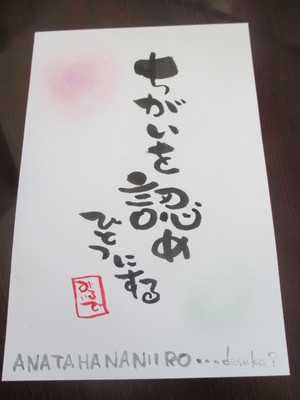 ちがいを認め
ひとつにする
ANATAHANANIIRO...desuka?